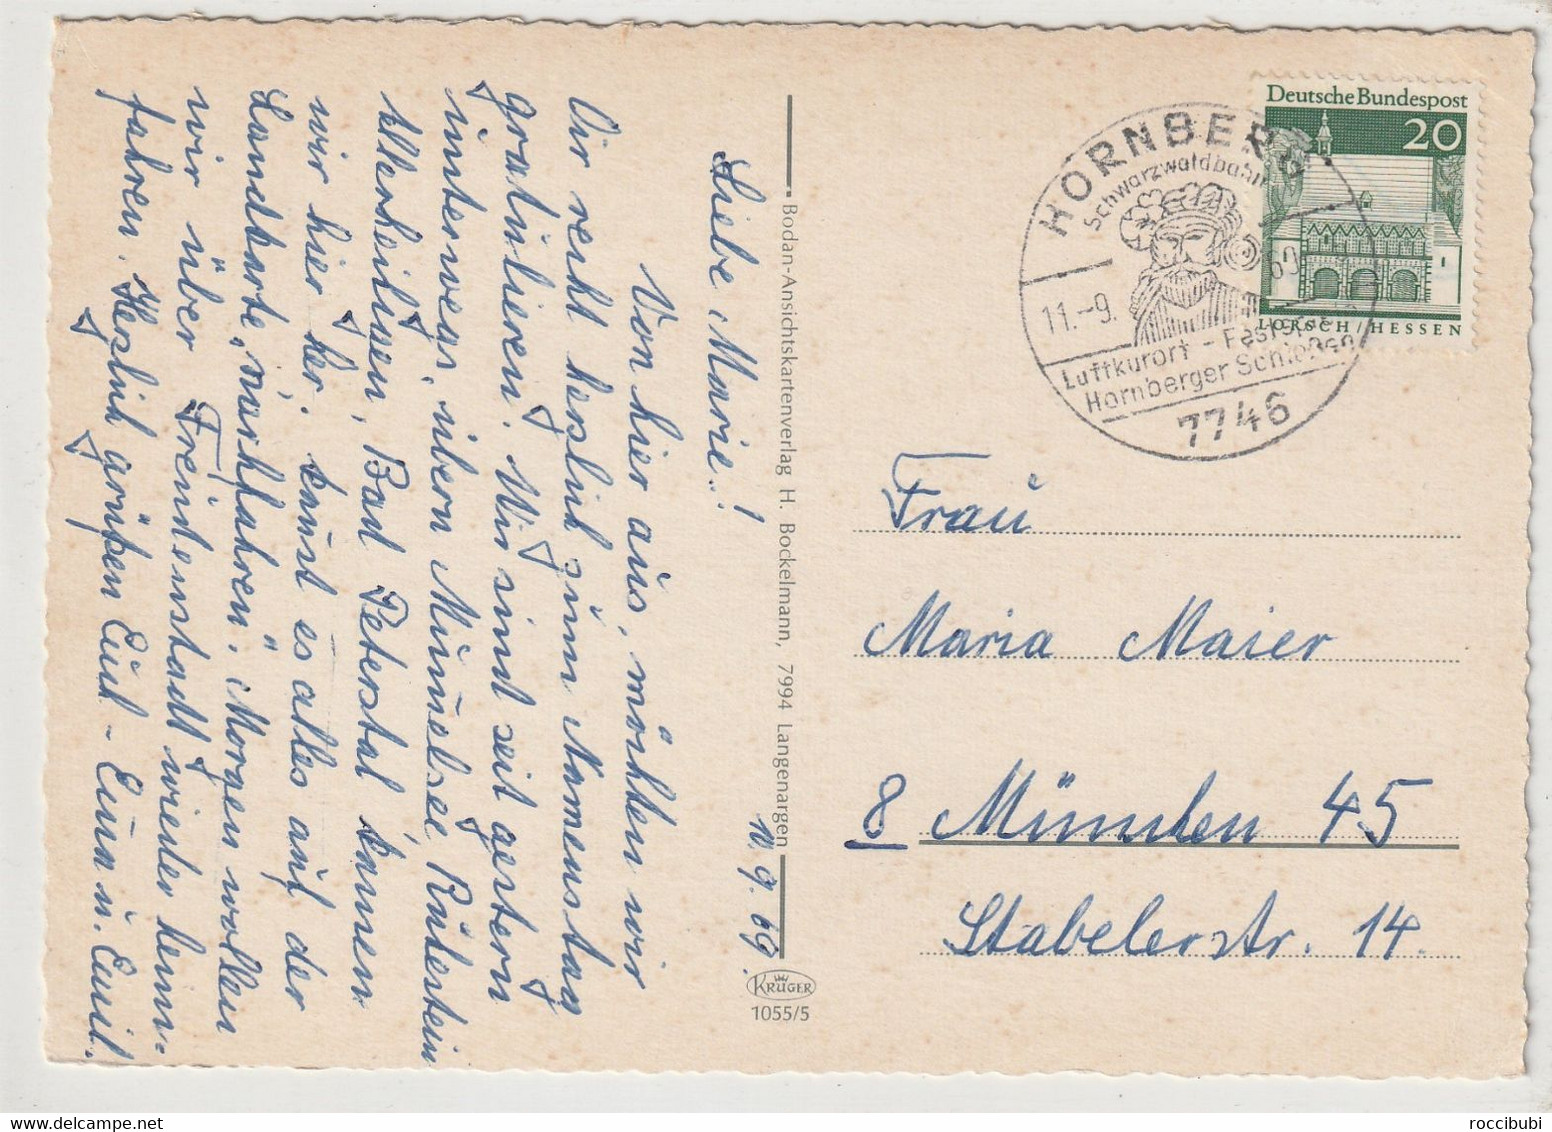 10.9.69.
Liebe Marie!
Von hier aus, möchten wir
Dir recht herzlich zum Namenstag
gratulieren. Wir sind seit gestern
unterwegs, übern
Allerheiligen, Bad Peterstal kamen
wir hier her.
Landkarte nachfahren. Morgen wollen
wir über Freudenstadt wieder heim-
fahren. Herzlich grüßen Euch - Emma u. Emil.
Bodan-Ansichtskartenverlag H. Bockelmann, 7994 Langenargen
KRÜGER
1055/5
Deutsche Bundespost
20
LORSCH/HESSEN
HORNBERG
Schwarzwaldbahn
11.-9. 69
Luftkurort - Festspiele
Hornberger Schießen
7746
Frau
Maria Maier
8 München 45
Stabelerstr. 14.
roccibubi